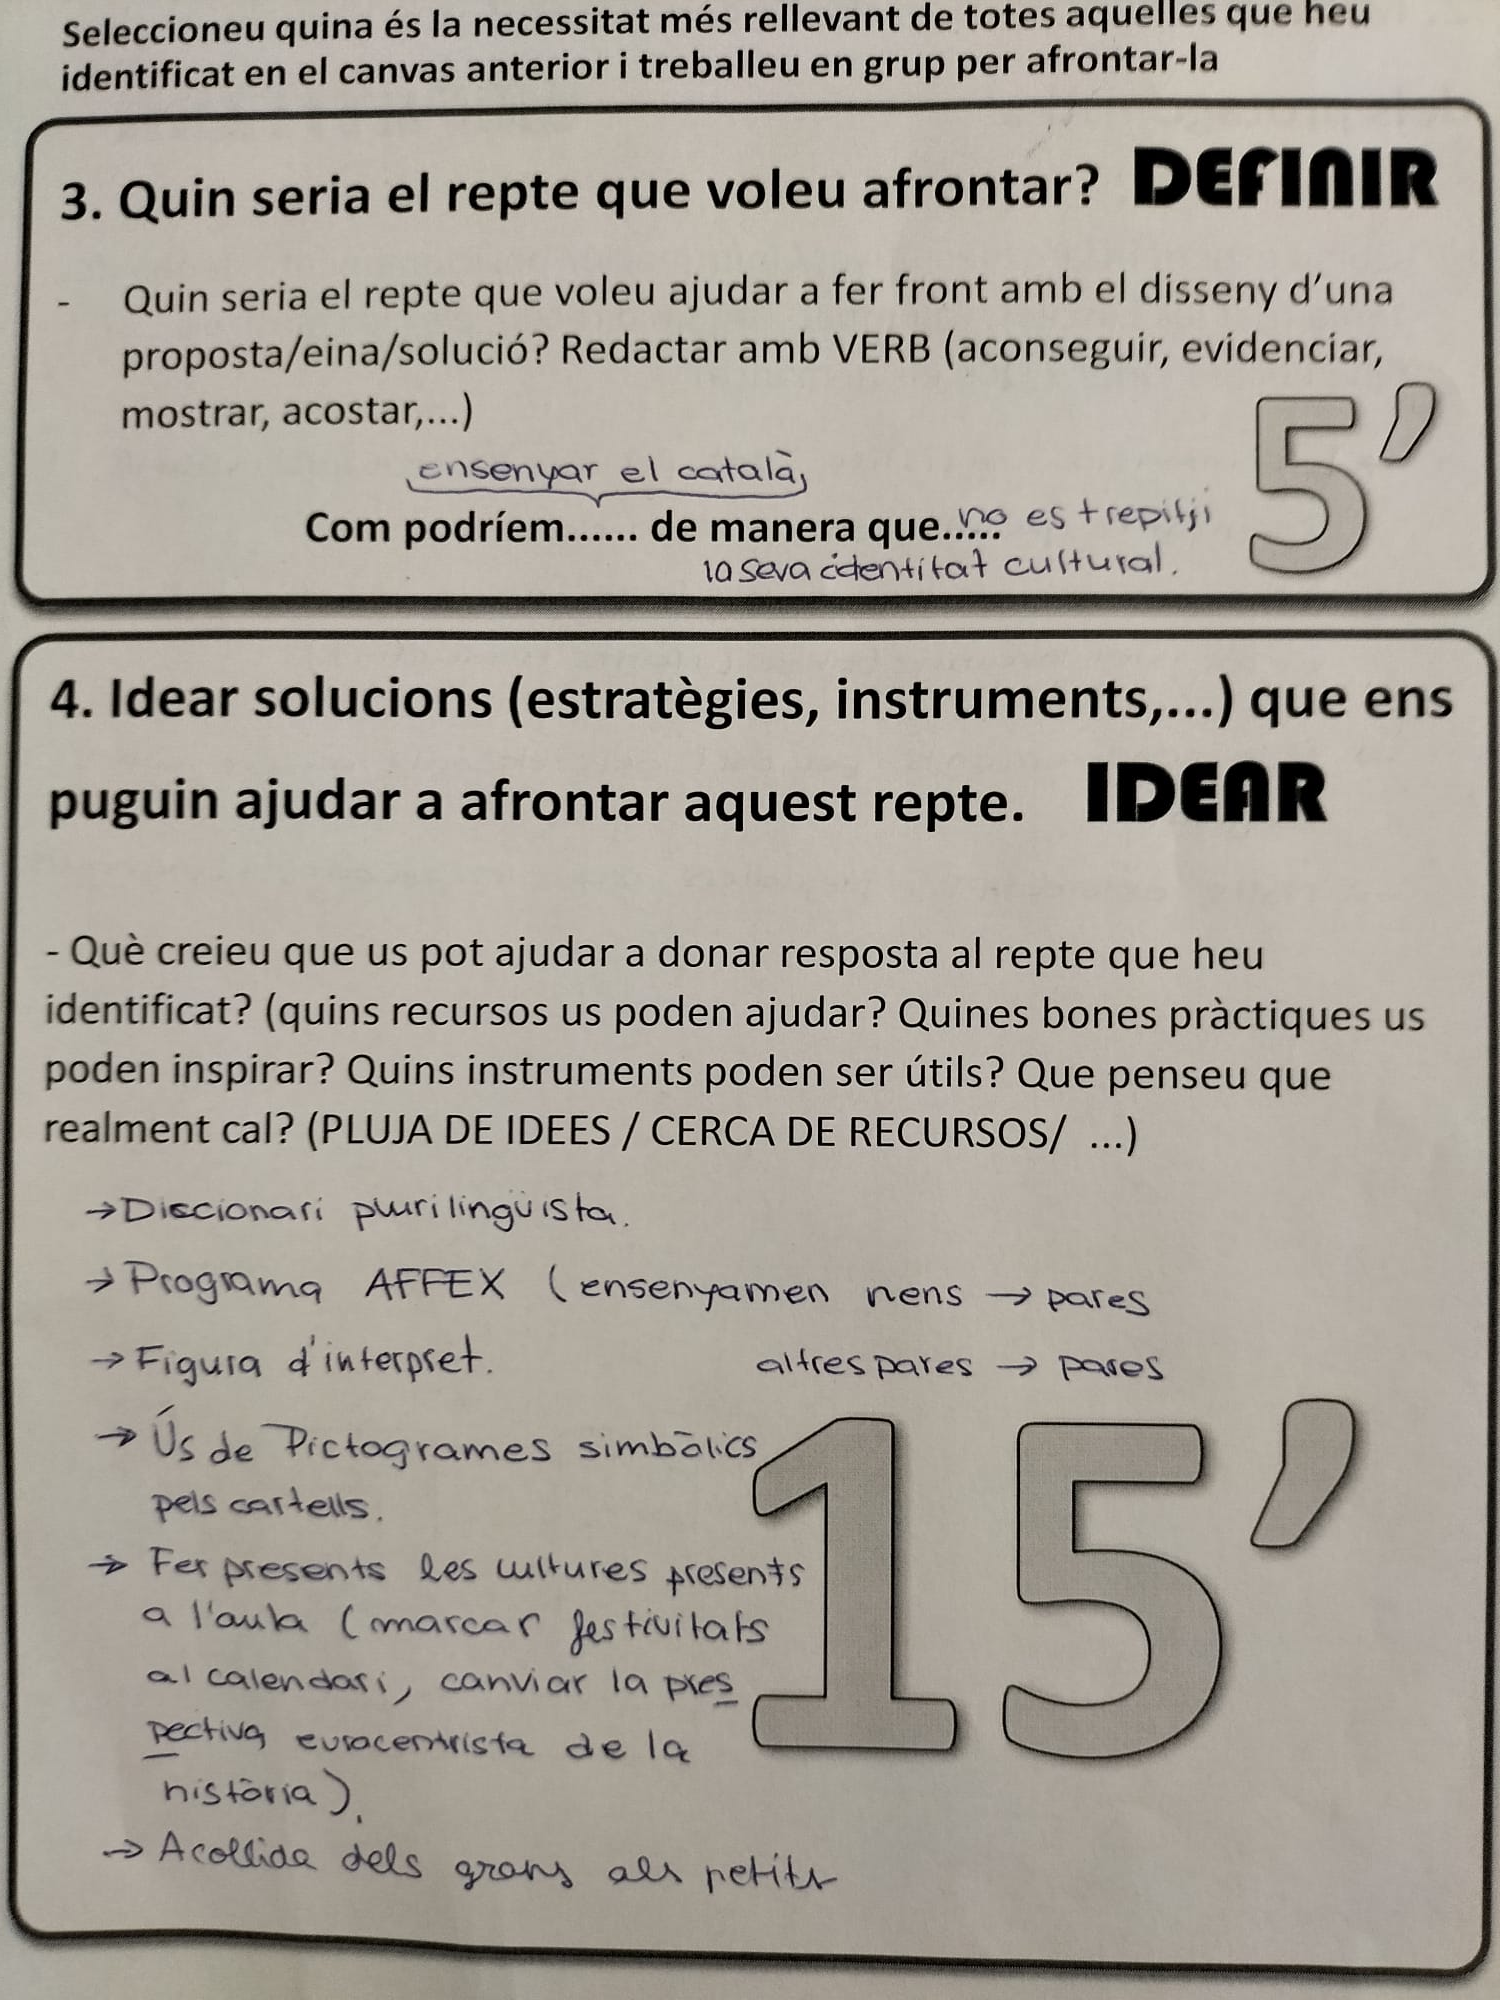 Seleccioneu quina és la necessitat més rellevant de totes aquelles que heu
identificat en el canvas anterior i treballeu en grup per afrontar-la
3. Quin seria el repte que voleu afrontar? DEFINIR
- Quin seria el repte que voleu ajudar a fer front amb el disseny d'una
proposta/eina/solució? Redactar amb VERB (aconseguir, evidenciar,
mostrar, acostar,...)
5'
ensenyar el català,
Com podríem...... de manera que..... no es trepitji
la seva identitat cultural.
4. Idear solucions (estratègies, instruments,...) que ens
puguin ajudar a afrontar aquest repte. IDEAR
- Què creieu que us pot ajudar a donar resposta al repte que heu
identificat? (quins recursos us poden ajudar? Quines bones pràctiques us
poden inspirar? Quins instruments poden ser útils? Que penseu que
realment cal? (PLUJA DE IDEES / CERCA DE RECURSOS/ ...)
→ Diccionari plurilingüista.
→ Programa AFFEX (ensenyamen nens → pares
→ Figura d'interpret. altres pares → pares
→ Ús de Pictogrames simbòlics
pels cartells.
15'
→ Fer presents les cultures presents
a l'aula (marcar festivitats
al calendari, canviar la pres
pectiva eurocentrista de la
història).
→ Acollida dels grans als petits